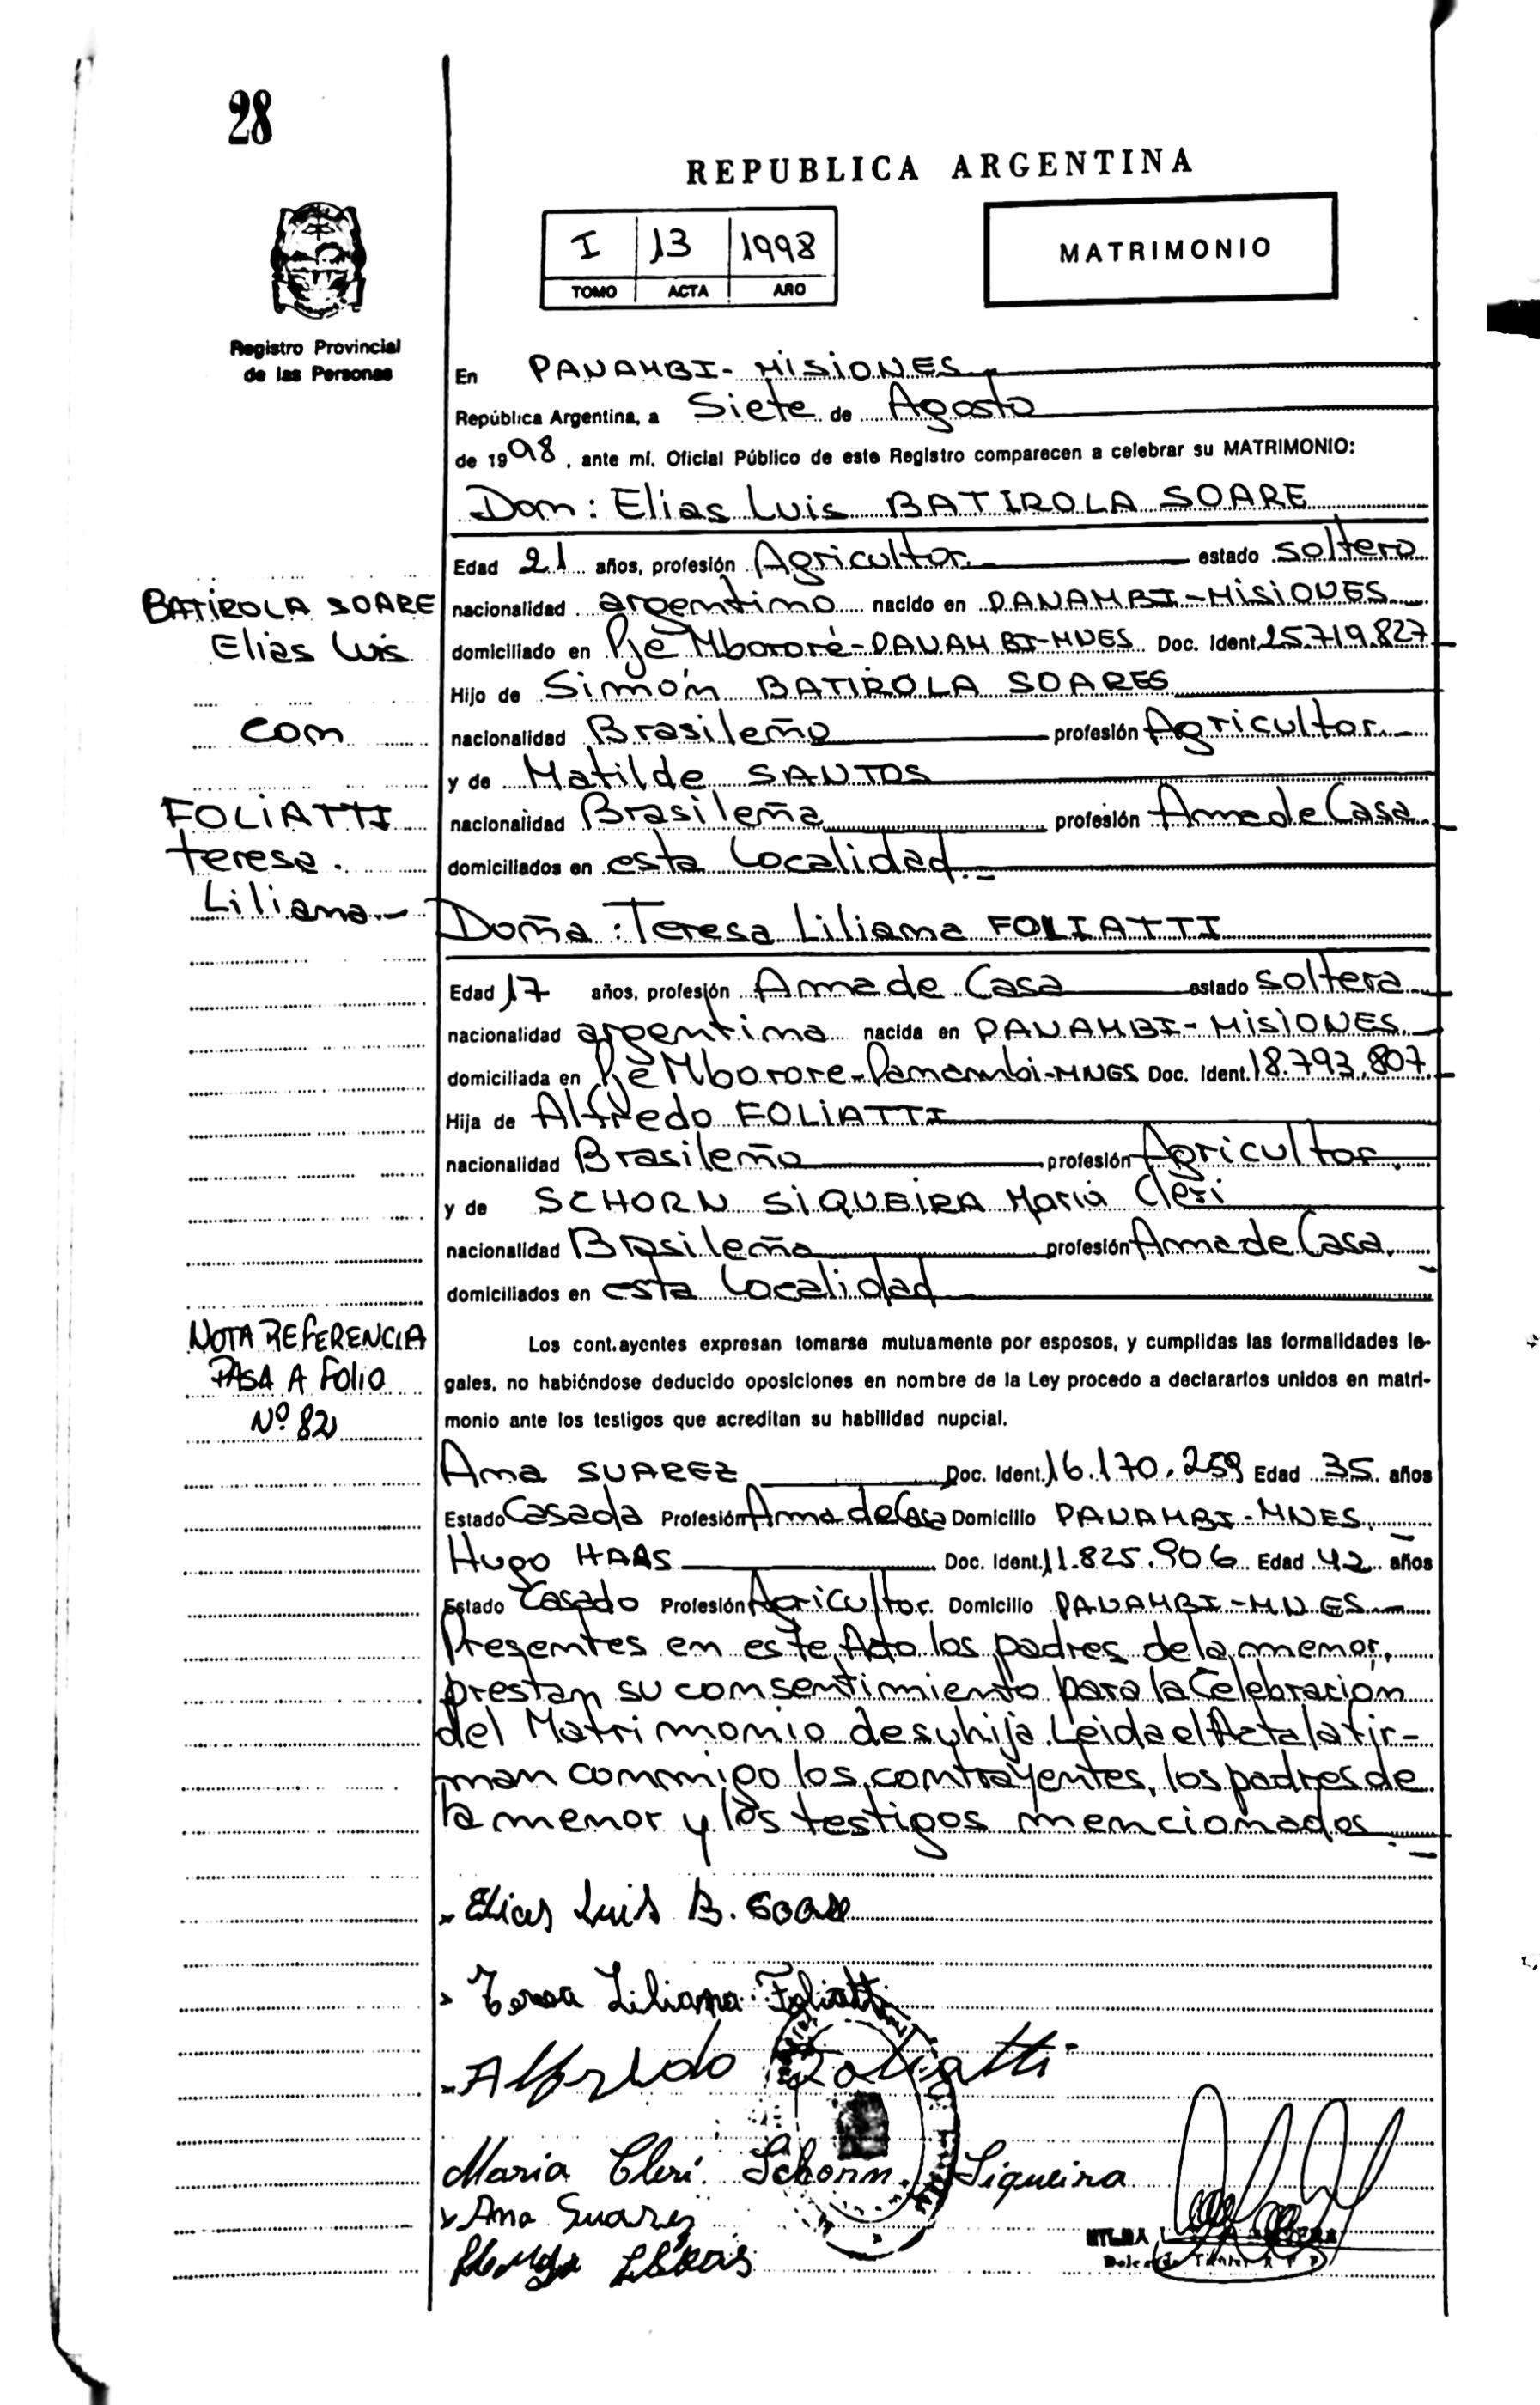 28
REPUBLICA ARGENTINA
I 13 1998
TOMO ACTA AÑO
MATRIMONIO
Registro Provincial
de las Personas
En PANAMBI - MISIONES
República Argentina, a Siete de Agosto
de 1998, ante mí, Oficial Público de este Registro comparecen a celebrar su MATRIMONIO:
Don: Elias Luis BATIROLA SOARE
Edad 21 años, profesión Agricultor. estado soltero
nacionalidad argentino nacido en PANAMBI-MISIONES
domiciliado en Pje Mbororé-PANAMBI-MNES Doc. Ident. 25.719.827
Hijo de Simón BATIROLA SOARES
nacionalidad Brasileño profesión Agricultor.
y de Matilde SANTOS
nacionalidad Brasileña profesión Ama de Casa
domiciliados en esta Localidad.
BATIROLA SOARE
Elias Luis
con
FOLIATTI
Teresa
Liliana.-
Doña: Teresa Liliana FOLIATTI
Edad 17 años, profesión Ama de Casa estado soltera
nacionalidad argentina nacida en PANAMBI-MISIONES.
domiciliada en Pje Mborore-Panambi-MNES Doc. Ident. 18.793.807
Hija de Alfredo FOLIATTI
nacionalidad Brasileño profesión Agricultor.
y de SCHORN SIQUEIRA Maria Cleri
nacionalidad Brasileña profesión Ama de Casa.
domiciliados en esta Localidad
NOTA REFERENCIA
PASA A Folio
Nº 82
Los contrayentes expresan tomarse mutuamente por esposos, y cumplidas las formalidades le-
gales, no habiéndose deducido oposiciones en nombre de la Ley procedo a declararlos unidos en matri-
monio ante los testigos que acreditan su habilidad nupcial.
Ana SUAREZ Doc. Ident. 16.170.259 Edad 35 años
Estado Casada Profesión Ama de Casa Domicilio PANAMBI-MNES.
Hugo HAAS Doc. Ident. 11.825.906 Edad 42 años
Estado Casado Profesión Agricultor. Domicilio PANAMBI-MNES
Presentes en este Acto los padres de la menor,
prestan su consentimiento para la Celebración
del Matrimonio de su hija. Leida el Acta la fir-
man conmigo los contrayentes, los padres de
la menor y los testigos mencionados
Elias Luis B. Soare
Teresa Liliana Foliatti
Alfredo Foliatti
Maria Cleri Schorn Siqueira
Ana Suarez